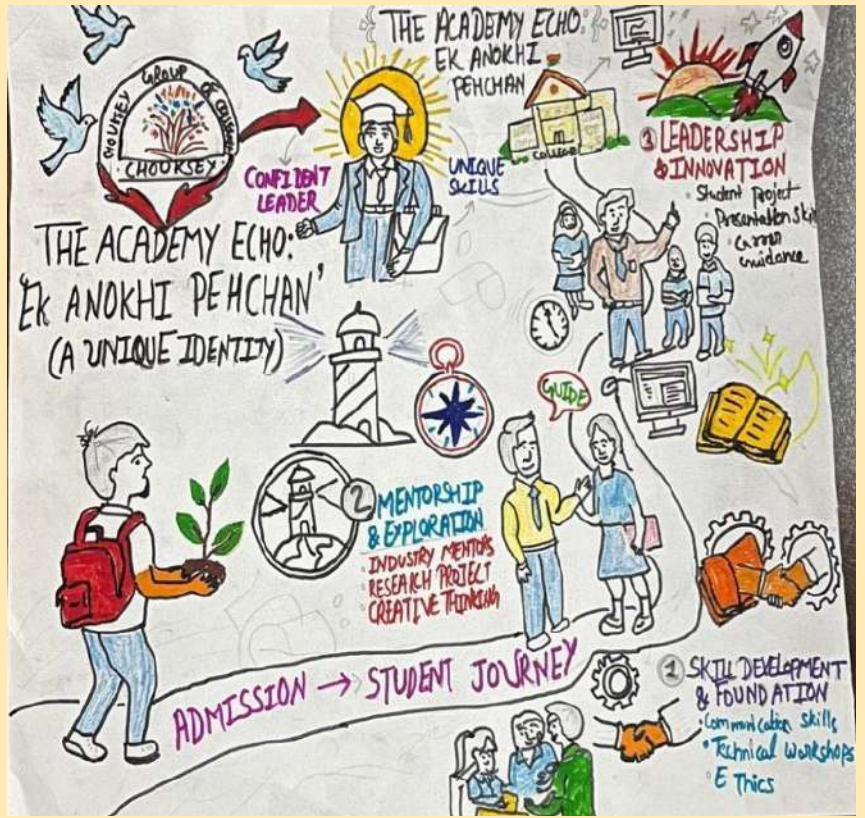 THE ACADEMY ECHO:
EK ANOKHI
PEHCHAN
CHOUKSEY GROUP OF
CHOUKSEY
CONFIDENT
LEADER
UNIQUE
SKILLS
COLLEGE
3 LEADERSHIP
& INNOVATION
• Student Project
• Presentation Skill
• Career
Guidance
THE ACADEMY ECHO:
'EK ANOKHI PEHCHAN'
(A UNIQUE IDENTITY)
GUIDE
2 MENTORSHIP
& EXPLORATION
• INDUSTRY MENTORS
• RESEARCH PROJECT
• CREATIVE THINKING
ADMISSION → STUDENT JOURNEY
1 SKILL DEVELOPMENT
& FOUNDATION
• Communication Skills
• Technical Workshops
• EThics